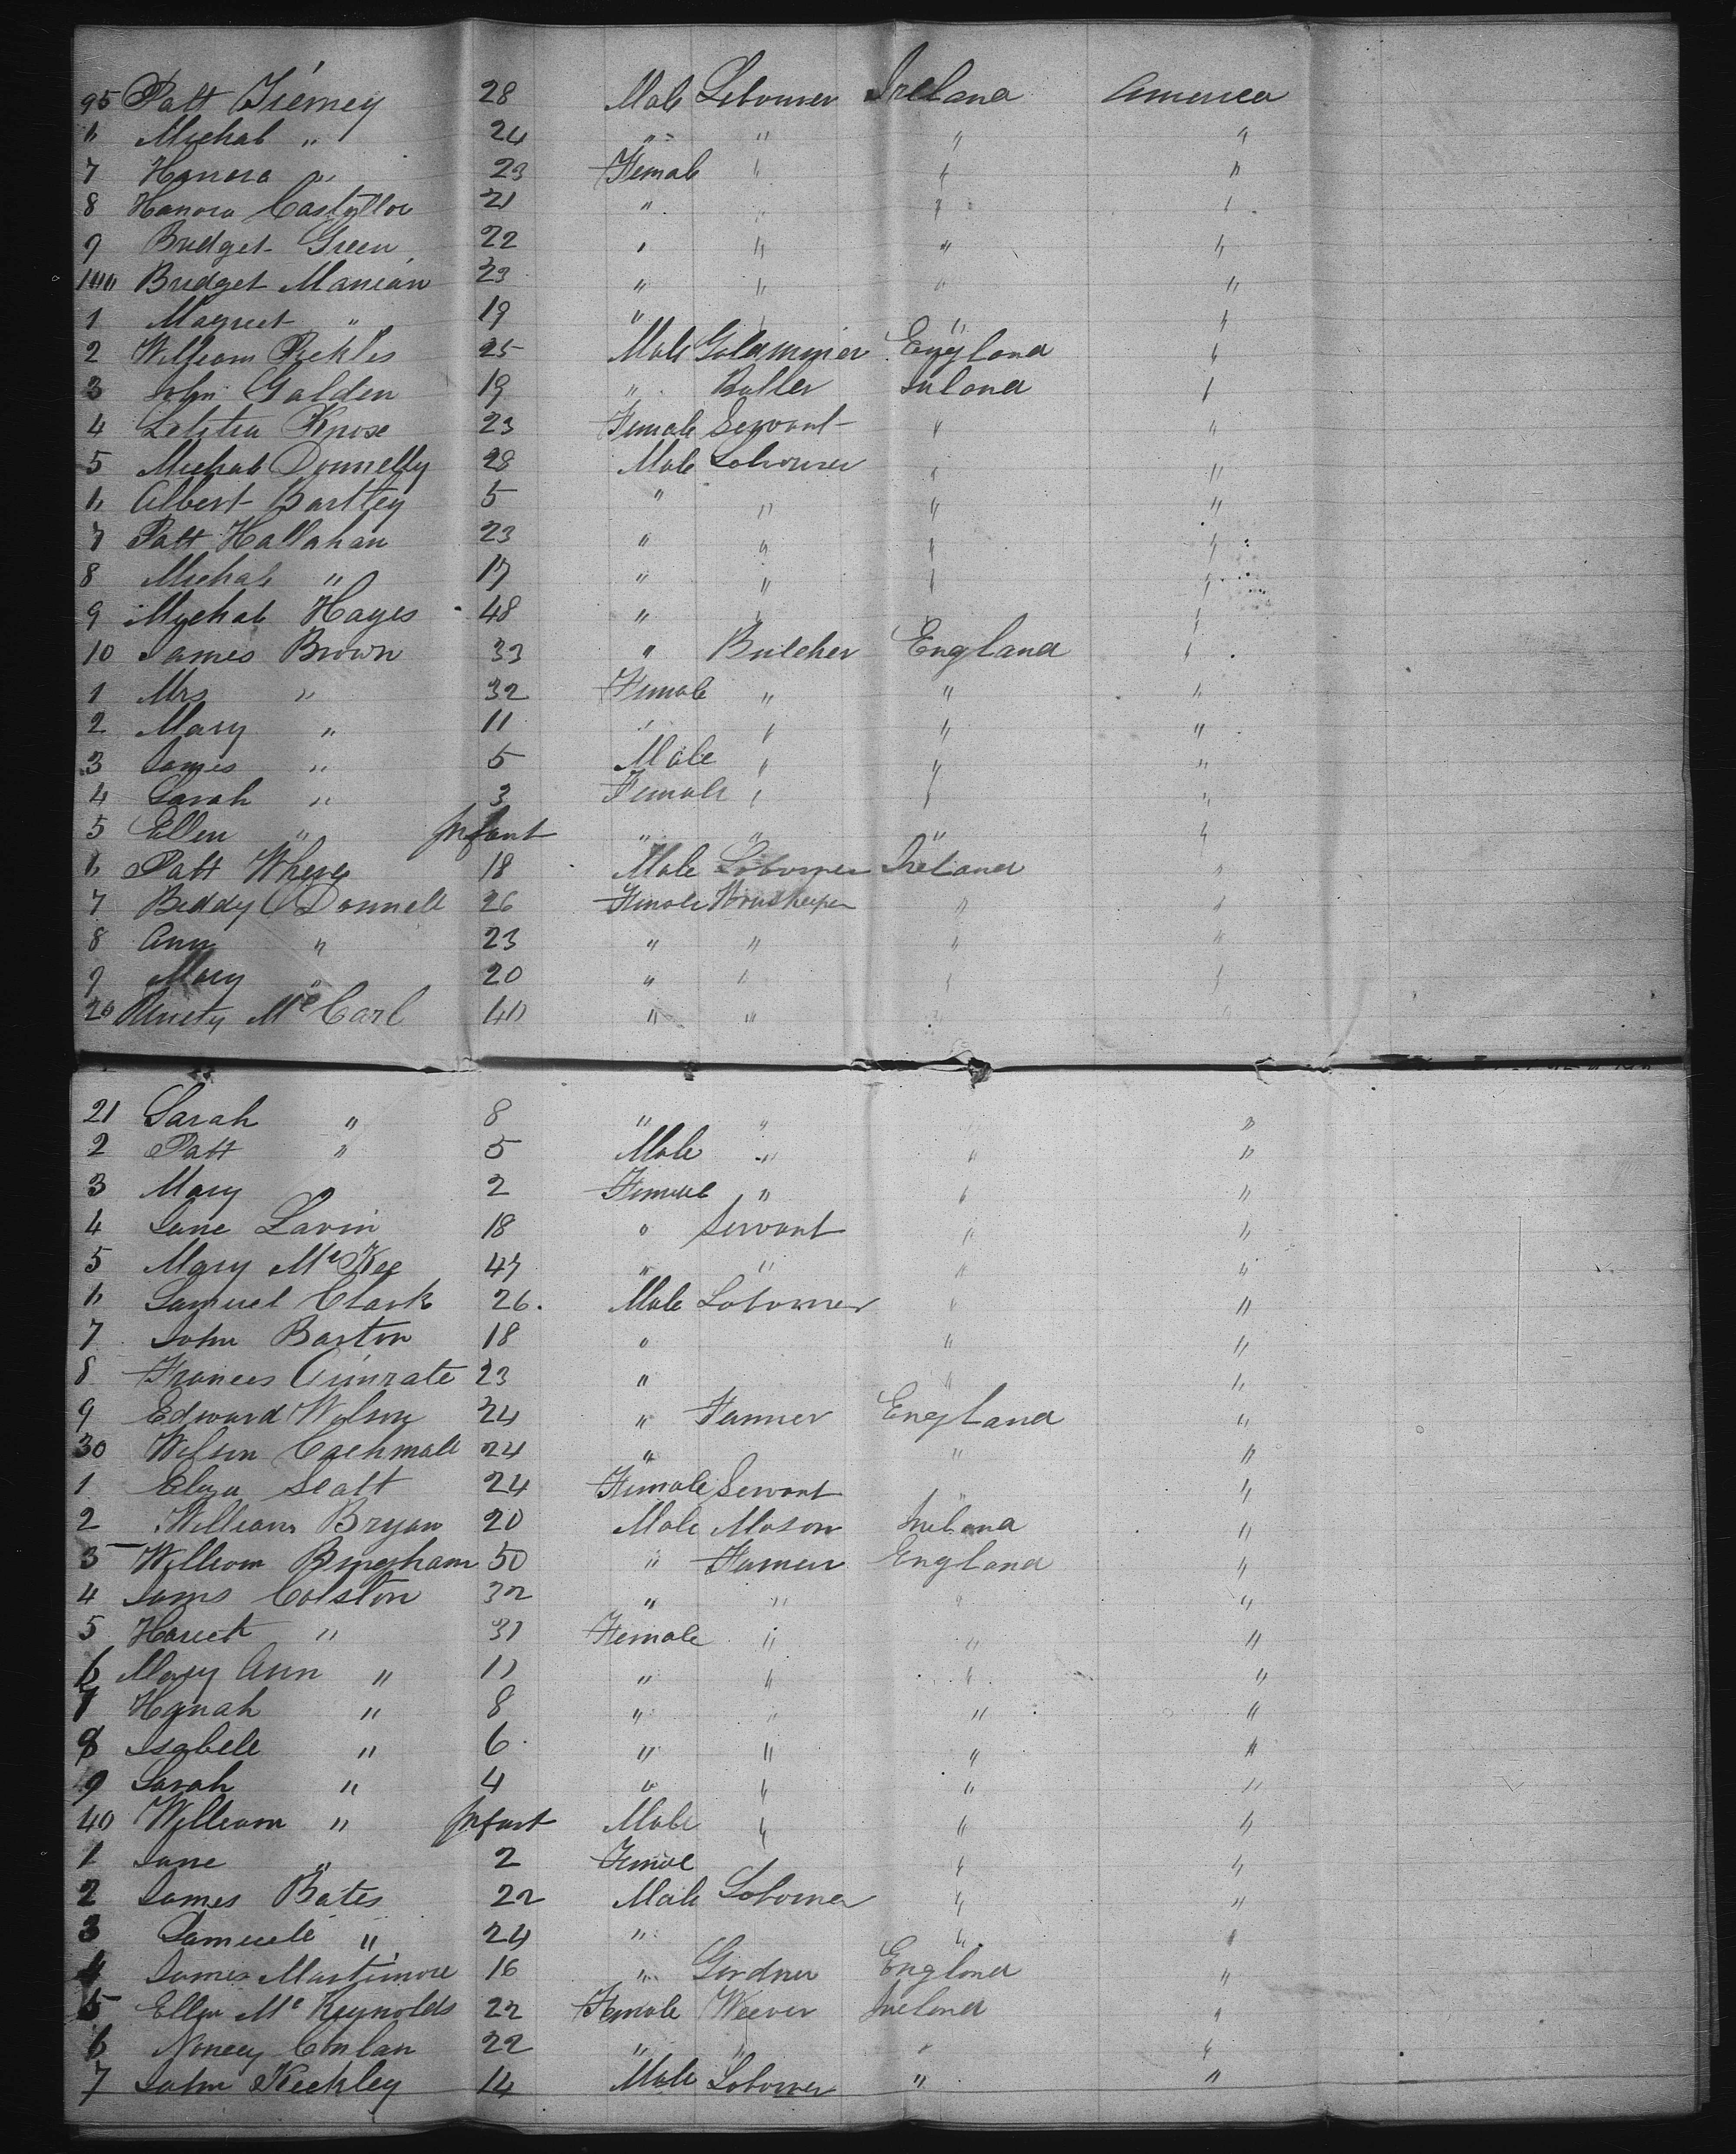 95 Patt Tierney 28 Male Labourer Ireland America
6 Michal " 24 " " " "
7 Hanora " 23 Female " " "
8 Hanora 21 " " " "
9 Bridget Green 22 " " " "
100 Bridget Manian 23 " " " "
1 Magret " 19 " " " "
2 William Pickles 25 Male Goldminer England "
3 John Golden 19 " Ireland "
4 Letitia Knose 23 Female Servant " "
5 Michal Donnelly 28 Male Labourer " "
6 Albert Bartley 5 " " " "
7 Patt Hallahan 23 " " " "
8 Michal " 17 " " " "
9 Mychal Hayes 48 " " " "
10 James Brown 33 " Butcher England "
1 Mrs " 32 Female " " "
2 Mary " 11 " " " "
3 James " 5 Male " " "
4 Sarah " 3 Female " " "
5 Ellen " Infant " " " "
6 Patt 18 Male Labourer Ireland "
7 Biddy O Donnell 26 Female " "
8 Ann " 23 " " " "
9 Mary " 20 " " " "
20 McCarl 40 " " "
21 Sarah " 8 " " "
2 Patt " 5 Male " " "
3 Mary 2 Female " " "
4 Jane Lavin 18 " Servant " "
5 Mary McKee 47 " " " "
6 Samuel Clark 26. Male Labourer " "
7 John Barton 18 " " "
8 Frances 23 " " "
9 Edward Wilson 34 " Farmer England "
30 Wilson 24 " " "
1 Eliza Scatt 24 Female Servant " "
2 William Bryan 20 Male Mason Ireland "
3 William Bingham 50 " Farmer England "
4 James Colston 32 " " " "
5 Hariet " 31 Female " " "
6 Mary Ann " 11 " " " "
7 Hanah " 8 " " " "
8 Isabell " 6 " " " "
9 Sarah " 4 " " " "
40 William " Infant Male " " "
1 Jane " 2 Female " "
2 James Bates 22 Male Labourer " "
3 Samuell " 24 " " "
4 James Martimore 16 " Gardner England "
5 Ellen McReynolds 22 Female Weever Ireland "
6 Noncey Conlan 22 " " " "
7 John Keekley 14 Male Labourer " "